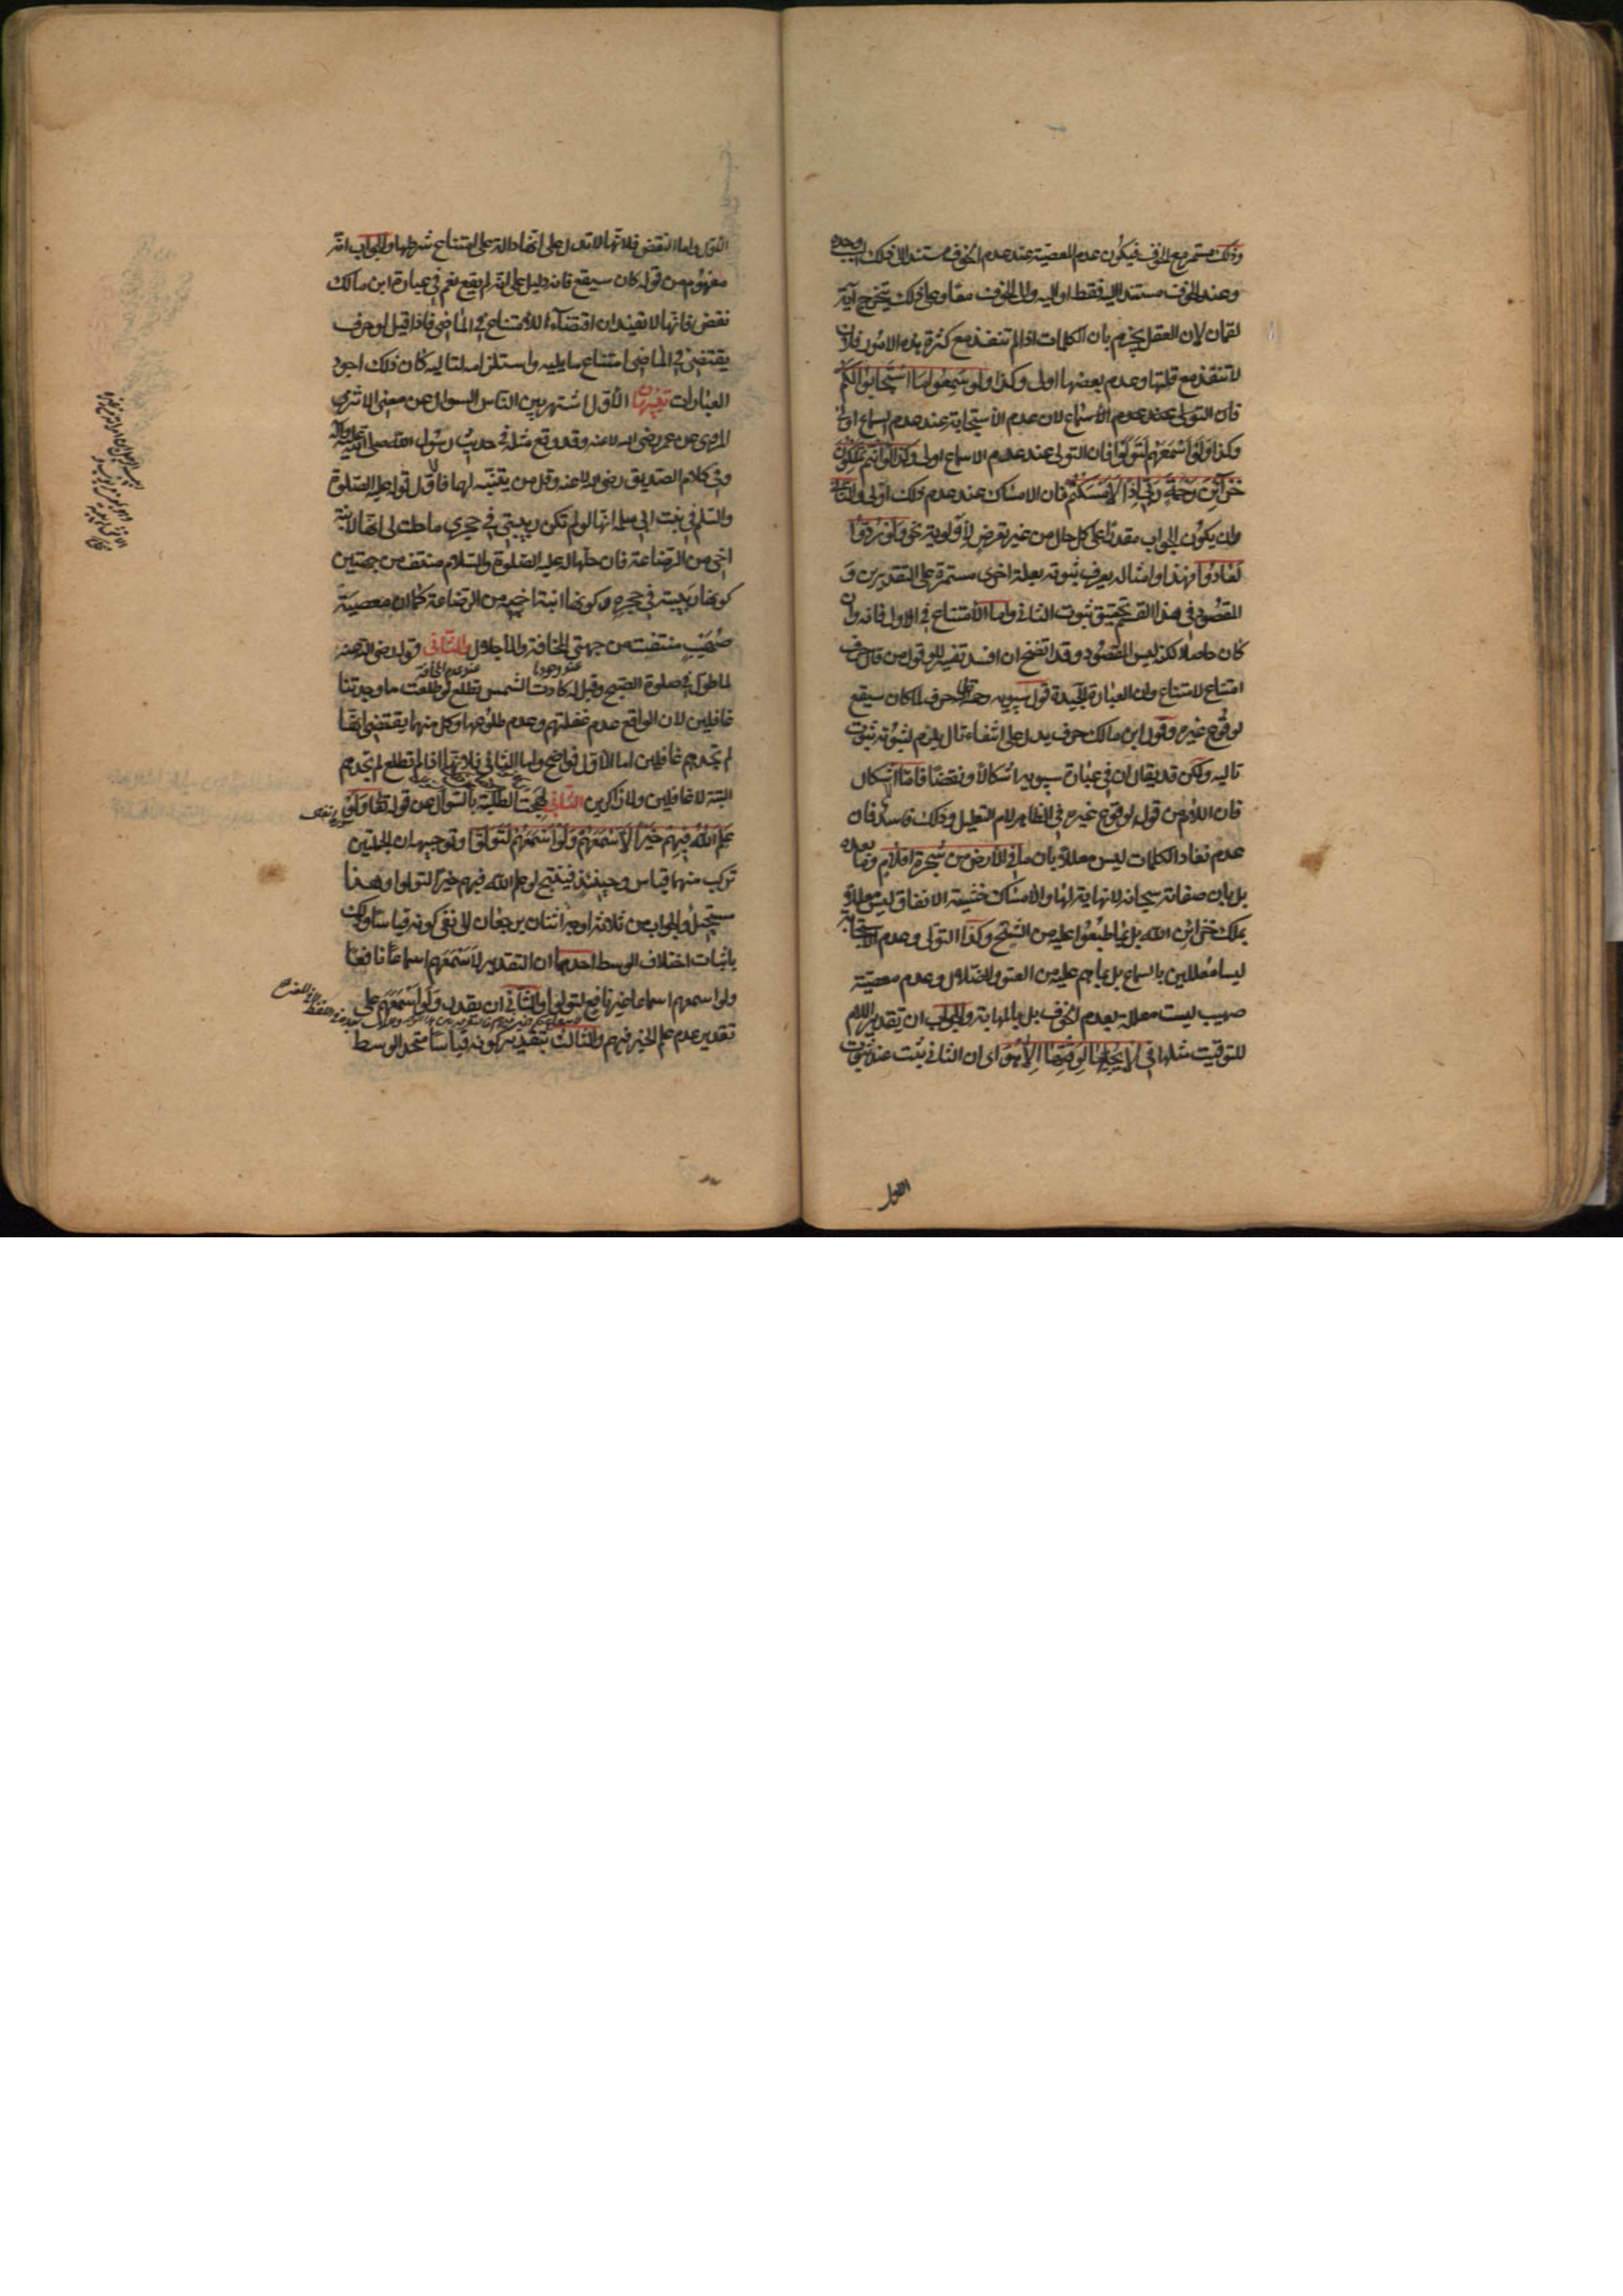 وذلك مستمر مع الخوف فيكون عدم المعصية عند عدم الخوف مستندا الى ذلك السبب وحده
وعند الخوف مستندا اليه فقط او اليه والى الخوف معا وعلى ذلك يتخرج آية
لقمان لان العقل يجزم بان الكلمات اذا لم تنفد مع كثرة هذه الامور فلان
لا تنفد مع قلتها وعدم بعضها اولى وكذا ولو سمعوا ما استجابوا لكم
فان التولى عند عدم الاسماع لان عدم الاستجابة عند عدم السماع اولى
وكذا ولو اسمعهم لتولوا فان التولى عند عدم الاسماع اولى وكذا لو انتم تملكون
خزائن رحمة ربى اذا لامسكتم فان الامساك عند عدم ذلك اولى والثانى
وان يكون الجواب مقدرا على كل حال من غير تعرض لاولوية نحو ولو ردوا
لعادوا فهذا وامثاله يعرف ثبوته بعلة اخرى مستمرة على التقديرين و
المقصود فى هذا القسم تحقيق ثبوت الثانى واما الامتناع فى الاول فانه وان
كان حاصلا لكنه ليس المقصود وقد اتضح ان افسد تفسير للو قول من قال حرف
امتناع لامتناع وان العبارة الجيدة قول سيبويه رحمه الله حرف لما كان سيقع
لوقوع غيره وقول ابن مالك حرف يدل على انتفاء تال يلزم لثبوته ثبوت
تاليه ولكن قد يقال ان فى عبارة سيبويه اشكالا ونقضا فاما الاشكال
فان اللام من قوله لوقوع غيره فى الظاهر لام التعليل وذلك فاسد فان
عدم نفاد الكلمات ليس معللا بان ما فى الارض من شجرة اقلام وما بعده
بل بان صفاته سبحانه لا نهاية لها والامساك خشية الانفاق ليس معللا
بملك خزائن الله بل بما طبعوا عليه من الشح وكذا التولى وعدم الاستجابة
ليسا معللين بالسماع بل بما هم عليه من العتو والضلال وعدم معصية
صهيب ليست معللة بعدم الخوف بل بالمهابة والجواب ان تقدير اللام
للتوقيت مثلها فى لا يجليها لوقتها الا هو اى ان الثانى يثبت عند ثبوت
الاول
الاول واما النقض فلانها لا تدل على انها دالة على امتناع شرطها والجواب انه
مفهوم من قوله كان سيقع فانه دليل على انه لم يقع نعم فى عبارة ابن مالك
نقض فانها لا تفيد ان اقتضاءه للامتناع فى الماضى فاذا قيل لو حرف
يقتضى فى الماضى امتناع ما يليه واستلزامه لتاليه كان ذلك اجود
العبارات تنبيهان الاول اشتهر بين الناس السوال عن معنى الاثر
المروى عن عمر رضى الله عنه وقد وقع مثله فى حديث رسول الله صلى الله عليه وآله
وفى كلام الصديق رضى الله عنه وقل من يتنبه لها فالاول قوله عليه الصلوة
والسلم فى بنت ابى سلمة انها لو لم تكن ربيبتى فى حجرى ما حلت لى انها لابنة
اخى من الرضاعة فان حلها له عليه الصلوة والسلام منتف من جهتين
كونها ربيبته فى حجره وكونها ابنة اخيه من الرضاعة كما ان معصية
صهيب منتفية من جهتى المخافة والاجلال والثانى قوله رضى الله عنه
لما طول فى صلوة الصبح وقيل له كادت الشمس تطلع لو طلعت ما وجدتنا
غافلين لان الواقع عدم غفلتهم وعدم طلوعها وكل منهما يقتضى انها
لم تجدهم غافلين اما الاول فواضح واما الثانى فلانها اذا لم تطلع لم تجدهم
البتة لا غافلين ولا ذاكرين الثانى لهجت الطلبة بالسؤال عن قوله تعالى ولو
علم الله فيهم خيرا لاسمعهم ولو اسمعهم لتولوا وتوجيهه ان الجملتين
تركب منهما قياس وحينئذ فينتج لو علم الله فيهم خيرا لتولوا وهذا
مستحيل والجواب من ثلاثة اوجه اثنان يرجعان الى نفى كونه قياسا وذلك
باثبات اختلاف الوسط احدهما ان التقدير لاسمعهم اسماعا نافعا
ولو اسمعهم اسماعا غير نافع لتولوا والثانى ان يقدر ولو اسمعهم على
تقدير عدم علم الخير فيهم والثالث بتقدير كونه قياسا متحد الوسط